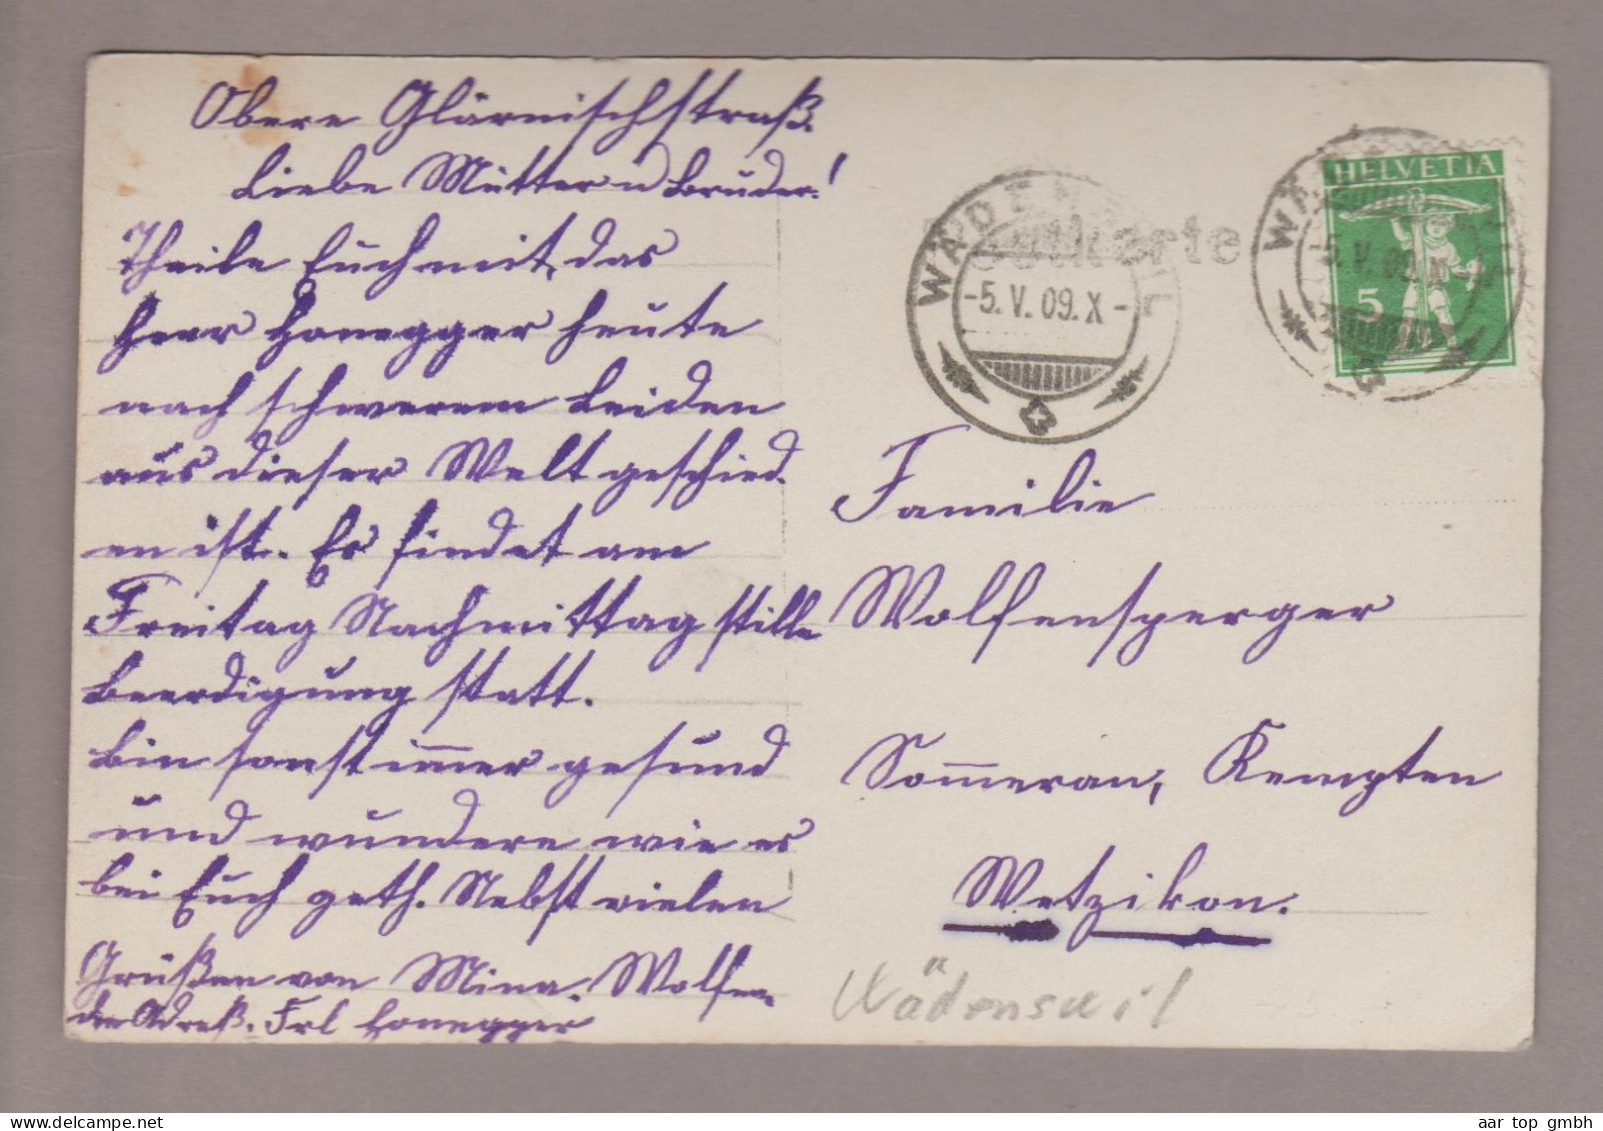 Obere Glärnischstraß.
Liebe Mutter u Bruder!
Theile Euch mit, das
Herr Honegger heute
nach schwerem Leiden
aus dieser Welt geschied.
en ist. Es findet am
Freitag Nachmittag stille
Beerdigung statt.
Bin sonst im̅er gesund
und wundere wie es
bei Euch geth. Nebst vielen
Grüßen von Mina. Wolfen.
Adreß. Frl Honegger
Postkarte
WÄDENSWIL
-5.V.09.X-
WÄ
-5.V.09.X
HELVETIA
5
Familie
Wolfensperger
Som̅erau, Kempten
Wetzikon.
Wädenswil
aar top gmbh